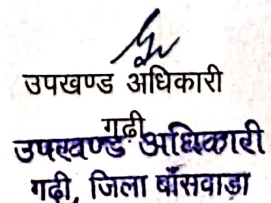 उपखण्ड अधिकारी
गढ़ी
उपखण्ड अधिकारी
गढी, जिला बाँसवाड़ा